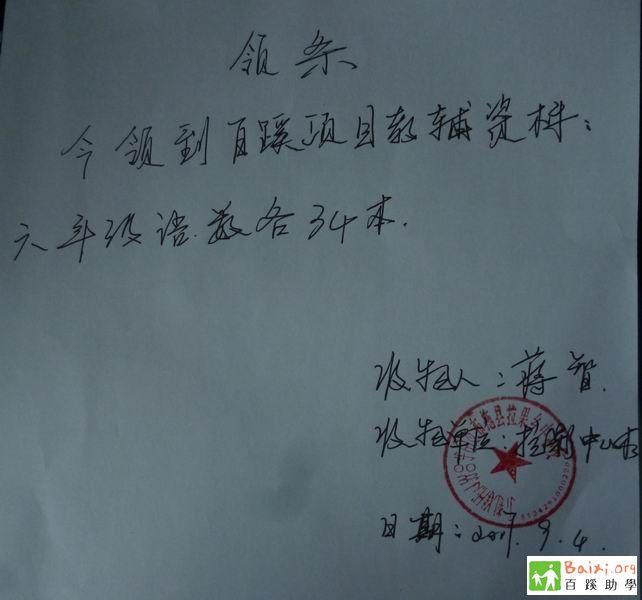 领条
今领到百蹊项目教辅资料:
六年级语.数各34本.
收物人:蒋智.
收物单位:拉果中心校
日期:2017.9.4.
Baixi.org
百蹊助學